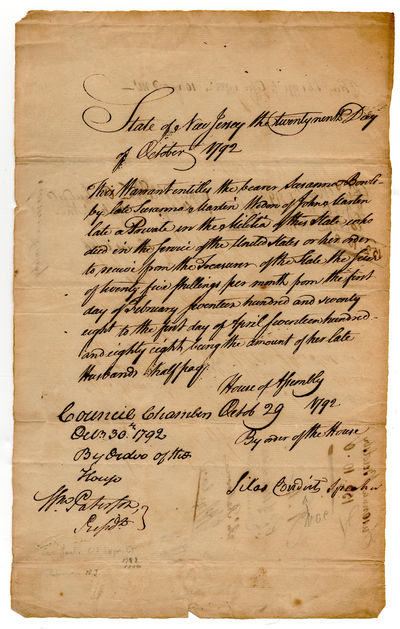 State of New Jersey the twenty ninth Day
of October 1792
This Warrant entitles the bearer Susanna
by late Susanna Martin Widow of John Martin
late a Private in the Militia of this State who
died in the Service of the United States or her order
to receive from the Treasurer of the State the sum
of twenty five shillings per month from the first
day of February seventeen hundred and seventy
eight to the first day of April seventeen hundred
and eighty eight being the amount of her late
Husbands half pay.
House of Assembly
Council Chamber Octob 29 1792
Octr 30th 1792 By order of the House
By Order of the
House
Silas Condict Speaker
Wm Paterson
Presidt